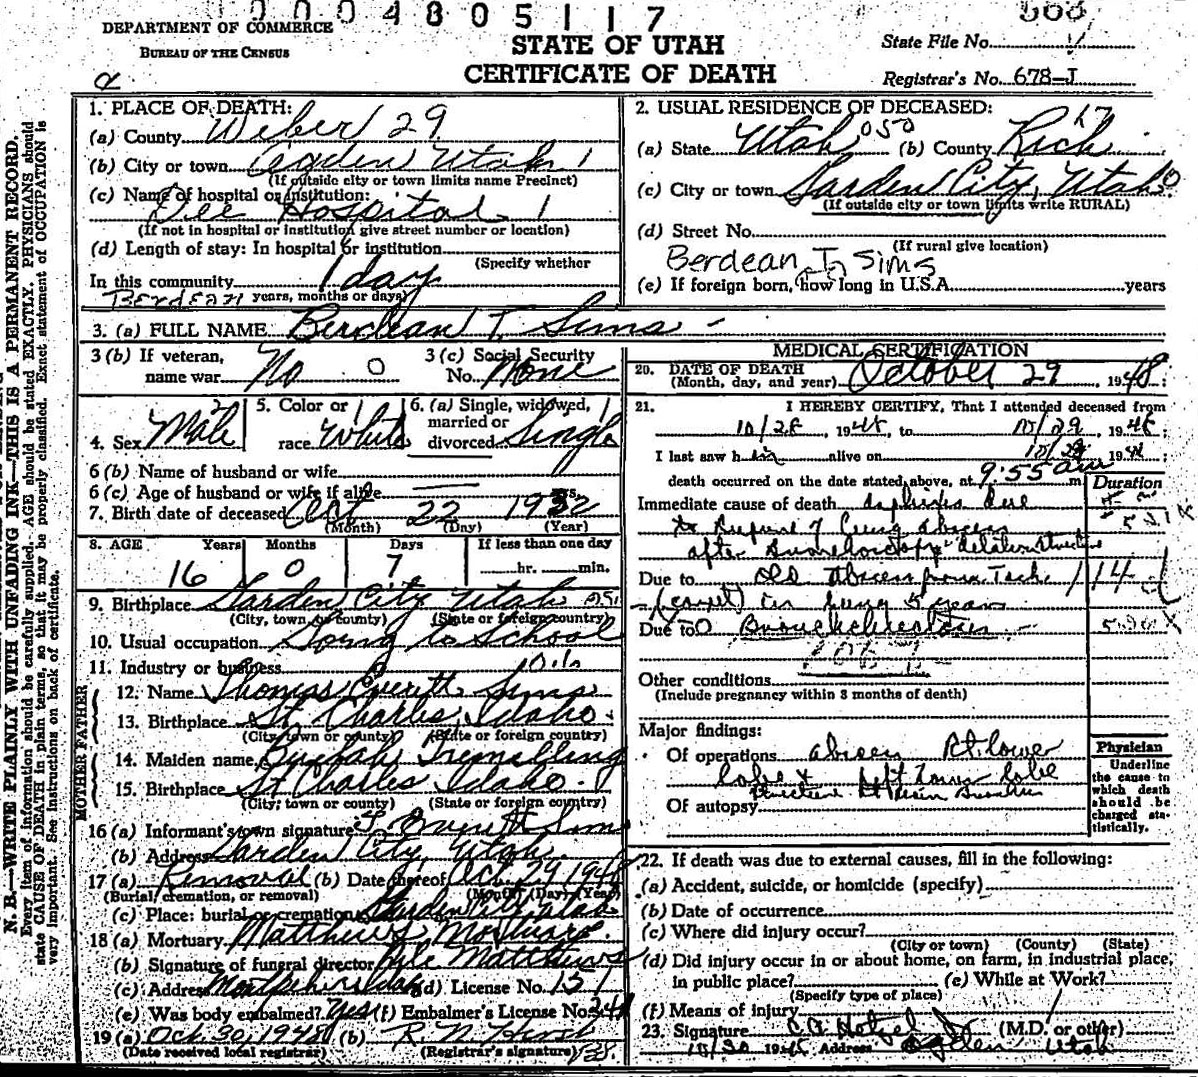 0004805117
DEPARTMENT OF COMMERCE
BUREAU OF THE CENSUS
STATE OF UTAH
CERTIFICATE OF DEATH
State File No.
Registrar's No. 678-J
N. B.—WRITE PLAINLY WITH UNFADING INK—THIS IS A PERMANENT RECORD.
Every item of information should be carefully supplied. AGE should be stated EXACTLY. PHYSICIANS should
state CAUSE OF DEATH in plain terms, so that it may be properly classified. Exact statement of OCCUPATION is
very important. See instructions on back of certificate.
1. PLACE OF DEATH:
(a) County Weber 29
(b) City or town Ogden Utah 1
(If outside city or town limits name Precinct)
(c) Name of hospital or institution:
Dee Hospital 1
(If not in hospital or institution give street number or location)
(d) Length of stay: In hospital or institution
(Specify whether
In this community 1 day
Berdean years, months or days)
2. USUAL RESIDENCE OF DECEASED:
(a) State Utah 050 (b) County Rich 17
(c) City or town Garden City, Utah 0
(If outside city or town limits write RURAL)
(d) Street No.
(If rural give location)
Berdean T. Sims
(e) If foreign born, how long in U.S.A. years
3. (a) FULL NAME Berdean T. Sims -
3 (b) If veteran, name war No 0
3 (c) Social Security No. None
4. Sex Male
5. Color or race White
6. (a) Single, widowed, married or divorced Single
6 (b) Name of husband or wife
6 (c) Age of husband or wife if alive yrs.
7. Birth date of deceased Oct 22 1932
(Month) (Day) (Year)
8. AGE Years Months Days If less than one day
16 0 7 hr. min.
9. Birthplace Garden City Utah
(City, town or county) (State or foreign country)
10. Usual occupation Going to School
11. Industry or business
FATHER
12. Name Thomas Everett Sims
13. Birthplace St. Charles, Idaho
(City, town or county) (State or foreign country)
MOTHER
14. Maiden name
15. Birthplace St Charles Idaho
(City, town or county) (State or foreign country)
16 (a) Informant's own signature T. Everett Sims
(b) Address Garden City, Utah
17 (a) Removal (b) Date thereof Oct 29 1948
(Burial, cremation, or removal) (Month) (Day) (Year)
(c) Place: burial or cremation Garden City Utah
18 (a) Mortuary Matthews Mortuary
(b) Signature of funeral director Matthews
(c) Address Montpelier Idaho (d) License No. 151
(e) Was body embalmed? Yes (f) Embalmer's License No.
19 (a) Oct. 30, 1948 (b) R. N. Hirst
(Date received local registrar) (Registrar's signature)
MEDICAL CERTIFICATION
20. DATE OF DEATH
(Month, day, and year) October 29, 1948;
21. I HEREBY CERTIFY, That I attended deceased from
10/28, 1948, to 10/29, 1948;
I last saw him alive on 10/29 1948
death occurred on the date stated above, at 9:55 am m
Duration
Immediate cause of death asphixia due
to rupture of lung abscess
after bronchoscopy
Due to Old abscess from
in lung 5 years
Due to Bronchiectasis
Other conditions
(Include pregnancy within 3 months of death)
Major findings:
Of operations abscess Rt. lower
lobe & left lower lobe
Of autopsy
Physician
Underline
the cause to
which death
should be
charged sta-
tistically.
22. If death was due to external causes, fill in the following:
(a) Accident, suicide, or homicide (specify)
(b) Date of occurrence
(c) Where did injury occur?
(City or town) (County) (State)
(d) Did injury occur in or about home, on farm, in industrial place,
in public place? (e) While at Work?
(Specify type of place)
(f) Means of injury
23. Signature (M.D. or other)
10/30 1948 Address Ogden, Utah